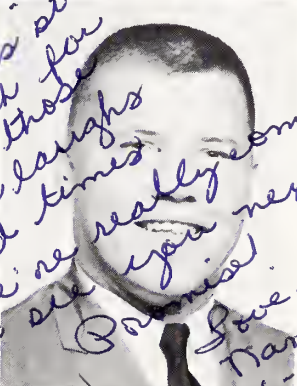 for
those
laughs
times
're really com
see you ne
Promise!
Love,
Nan